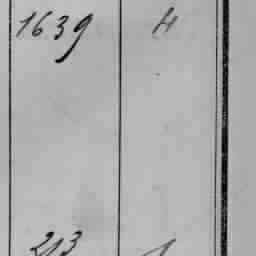 1639 H
213